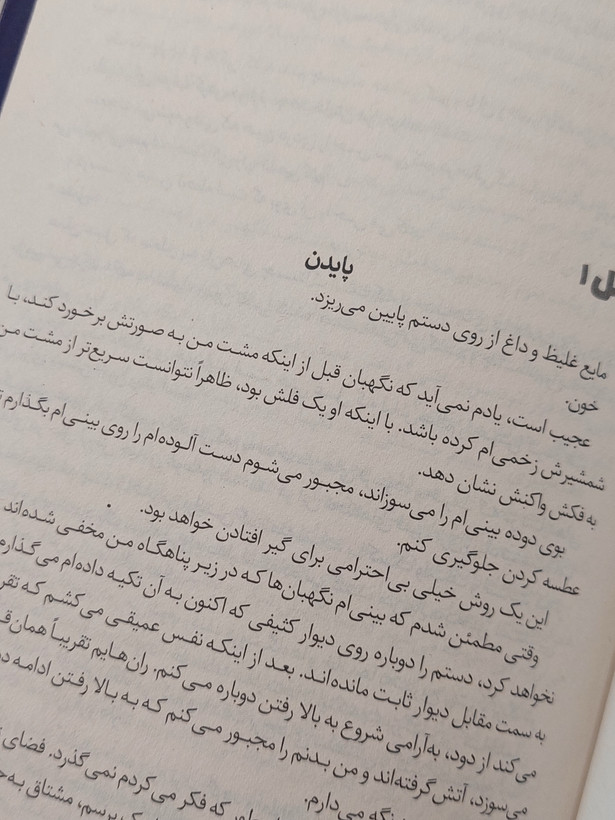 ل ۱
پایدن
مایع غلیظ و داغ از روی دستم پایین می‌ریزد.
خون.
عجیب است، یادم نمی‌آید که نگهبان قبل از اینکه مشت من به صورتش برخورد کند، با
شمشیرش زخمی‌ام کرده باشد. با اینکه او یک فلش بود، ظاهراً نتوانست سریع‌تر از مشت من
به فکش واکنش نشان دهد.
بوی دوده بینی‌ام را می‌سوزاند، مجبور می‌شوم دست آلوده‌ام را روی بینی‌ام بگذارم
عطسه کردن جلوگیری کنم.
این یک روش خیلی بی‌احترامی برای گیر افتادن خواهد بود.
وقتی مطمئن شدم که بینی‌ام نگهبان‌ها که در زیر پناهگاه من مخفی شده‌اند
نخواهد کرد، دستم را دوباره روی دیوار کثیفی که اکنون به آن تکیه داده‌ام می‌گذارم
به سمت مقابل دیوار ثابت مانده‌اند. بعد از اینکه نفس عمیقی می‌کشم که
می‌کند از دود، به‌آرامی شروع به بالا رفتن دوباره می‌کنم. ران‌هایم تقریباً
می‌سوزد، آتش گرفته‌اند و من بدنم را مجبور می‌کنم که به بالا رفتن ادامه
نگه می‌دارم.
که فکر می‌کردم نمی‌گذرد. فضای
برسم، مشتاق